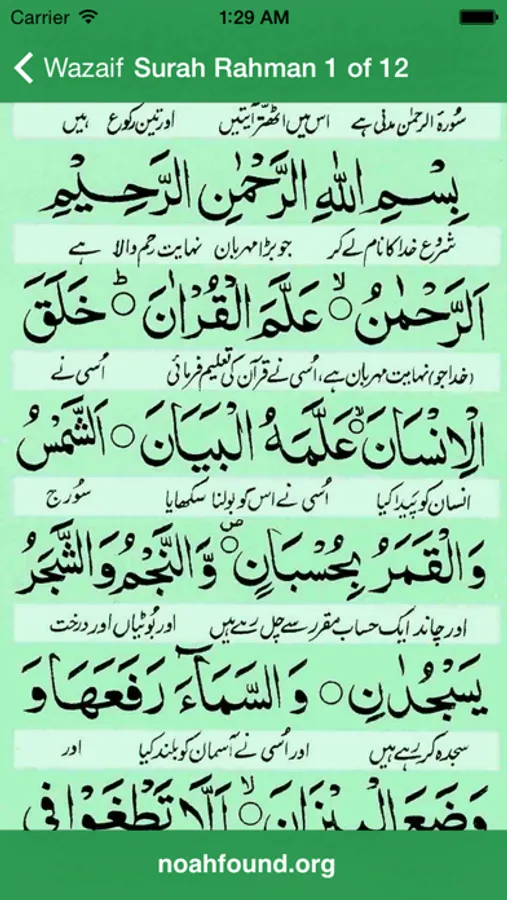 Carrier 1:29 AM
Wazaif Surah Rahman 1 of 12
سُورۃ الرحمٰن مدنی ہے اس میں اٹھتّر آیتیں اور تین رکوع ہیں
بِسْمِ اللّٰهِ الرَّحْمٰنِ الرَّحِيْمِ
شروع خدا کا نام لے کر جو بڑا مہربان نہایت رحم والا ہے
اَلرَّحْمٰنُ ۙ○ عَلَّمَ الْقُرْاٰنَ ؕ○ خَلَقَ
(خدا جو) نہایت مہربان ہے، اُسی نے قرآن کی تعلیم فرمائی اُسی نے
الْاِنْسَانَ ۙ○ عَلَّمَهُ الْبَيَانَ ○ اَلشَّمْسُ
انسان کو پیدا کیا اُسی نے اس کو بولنا سکھایا سُورج
وَالْقَمَرُ بِحُسْبَانٍ ۪○ وَّالنَّجْمُ وَالشَّجَرُ
اور چاند ایک حساب مقرر سے چل رہے ہیں اور بُوٹیاں اور درخت
يَسْجُدٰنِ ○ وَالسَّمَآءَ رَفَعَهَا وَ
سجدہ کر رہے ہیں اور اُسی نے آسمان کو بلند کیا اور
وَضَعَ الْمِيْزَانَ ۙ○ اَلَّا تَطْغَوْا فِي
noahfound.org